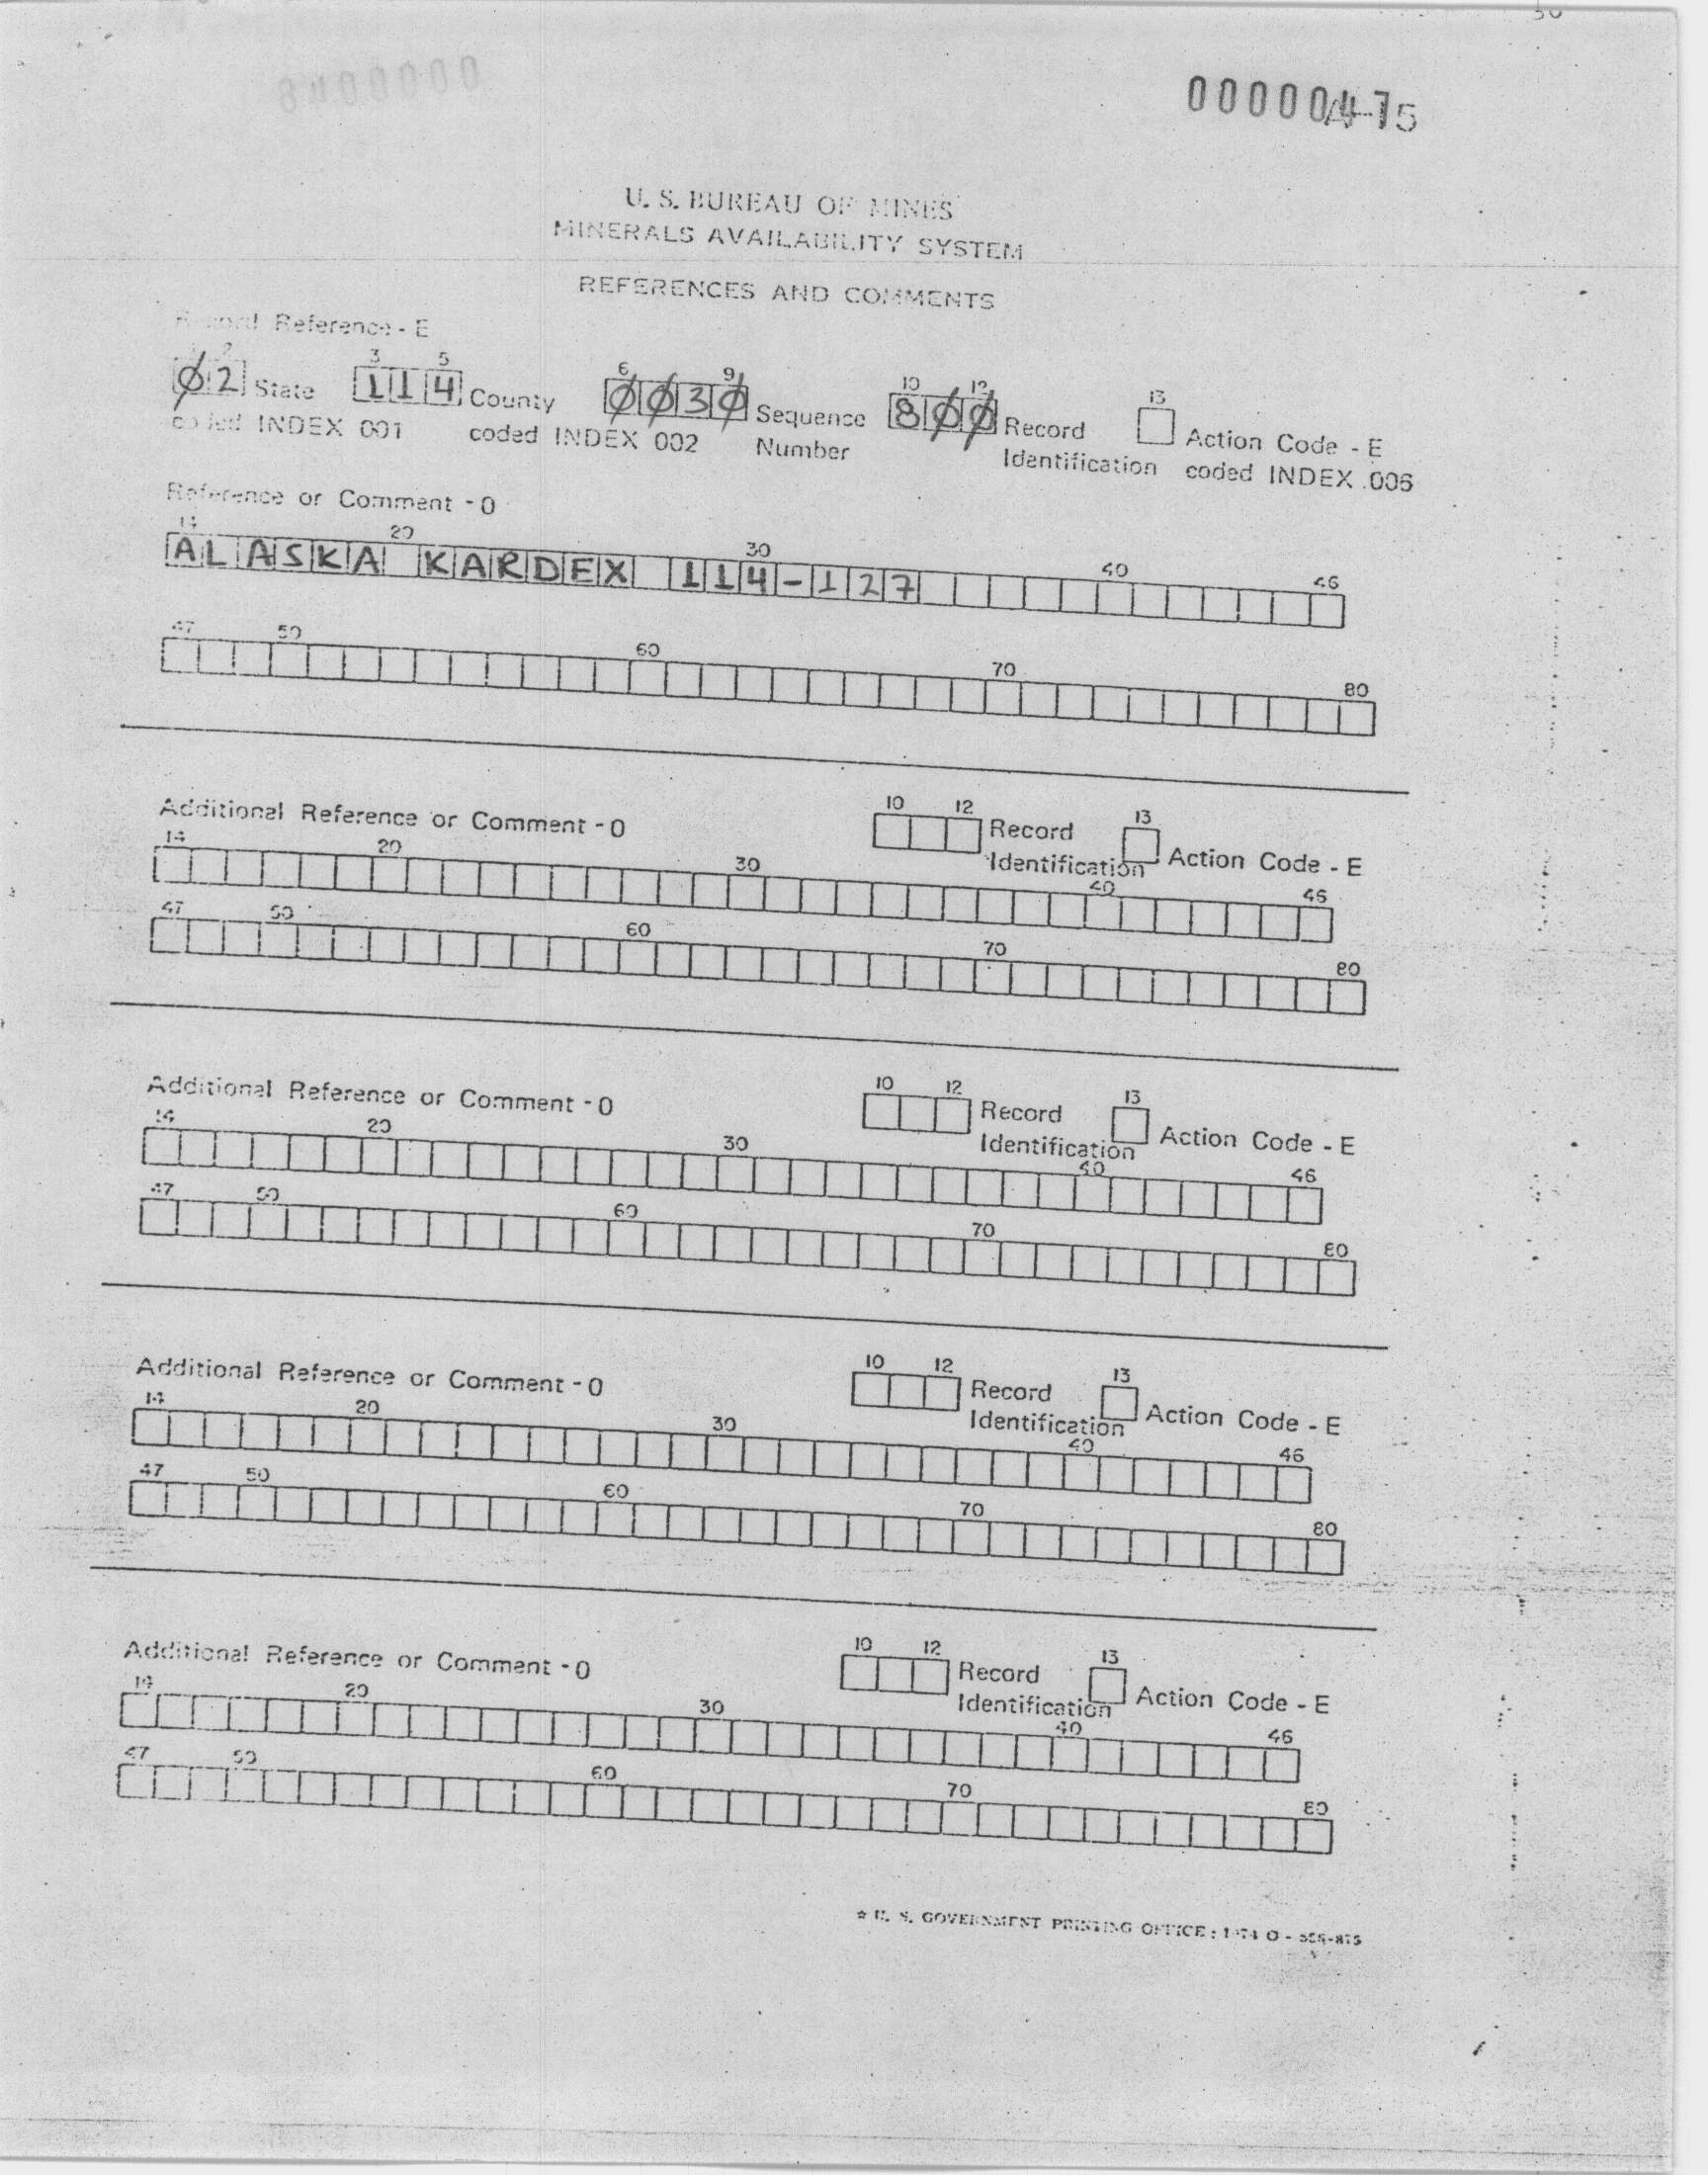 0000047
A-15
U. S. BUREAU OF MINES
MINERALS AVAILABILITY SYSTEM
REFERENCES AND COMMENTS
Record Reference - E
2 3 5 6 9 10 12 13
Ø2 State 114 County ØØ3Ø Sequence 8ØØ Record Action Code - E
coded INDEX 001 coded INDEX 002 Number Identification coded INDEX 006
Reference or Comment - O
14 20 30 40 46
ALASKA KARDEX 114-127
47 50 60 70 80
Additional Reference or Comment - O 10 12 Record 13 Action Code - E
Identification
14 20 30 40 46
47 50 60 70 80
Additional Reference or Comment - O 10 12 Record 13 Action Code - E
Identification
14 20 30 40 46
47 50 60 70 80
Additional Reference or Comment - O 10 12 Record 13 Action Code - E
Identification
14 20 30 40 46
47 50 60 70 80
Additional Reference or Comment - O 10 12 Record 13 Action Code - E
Identification
14 20 30 40 46
47 50 60 70 80
☆ U. S. GOVERNMENT PRINTING OFFICE : 1974 O -